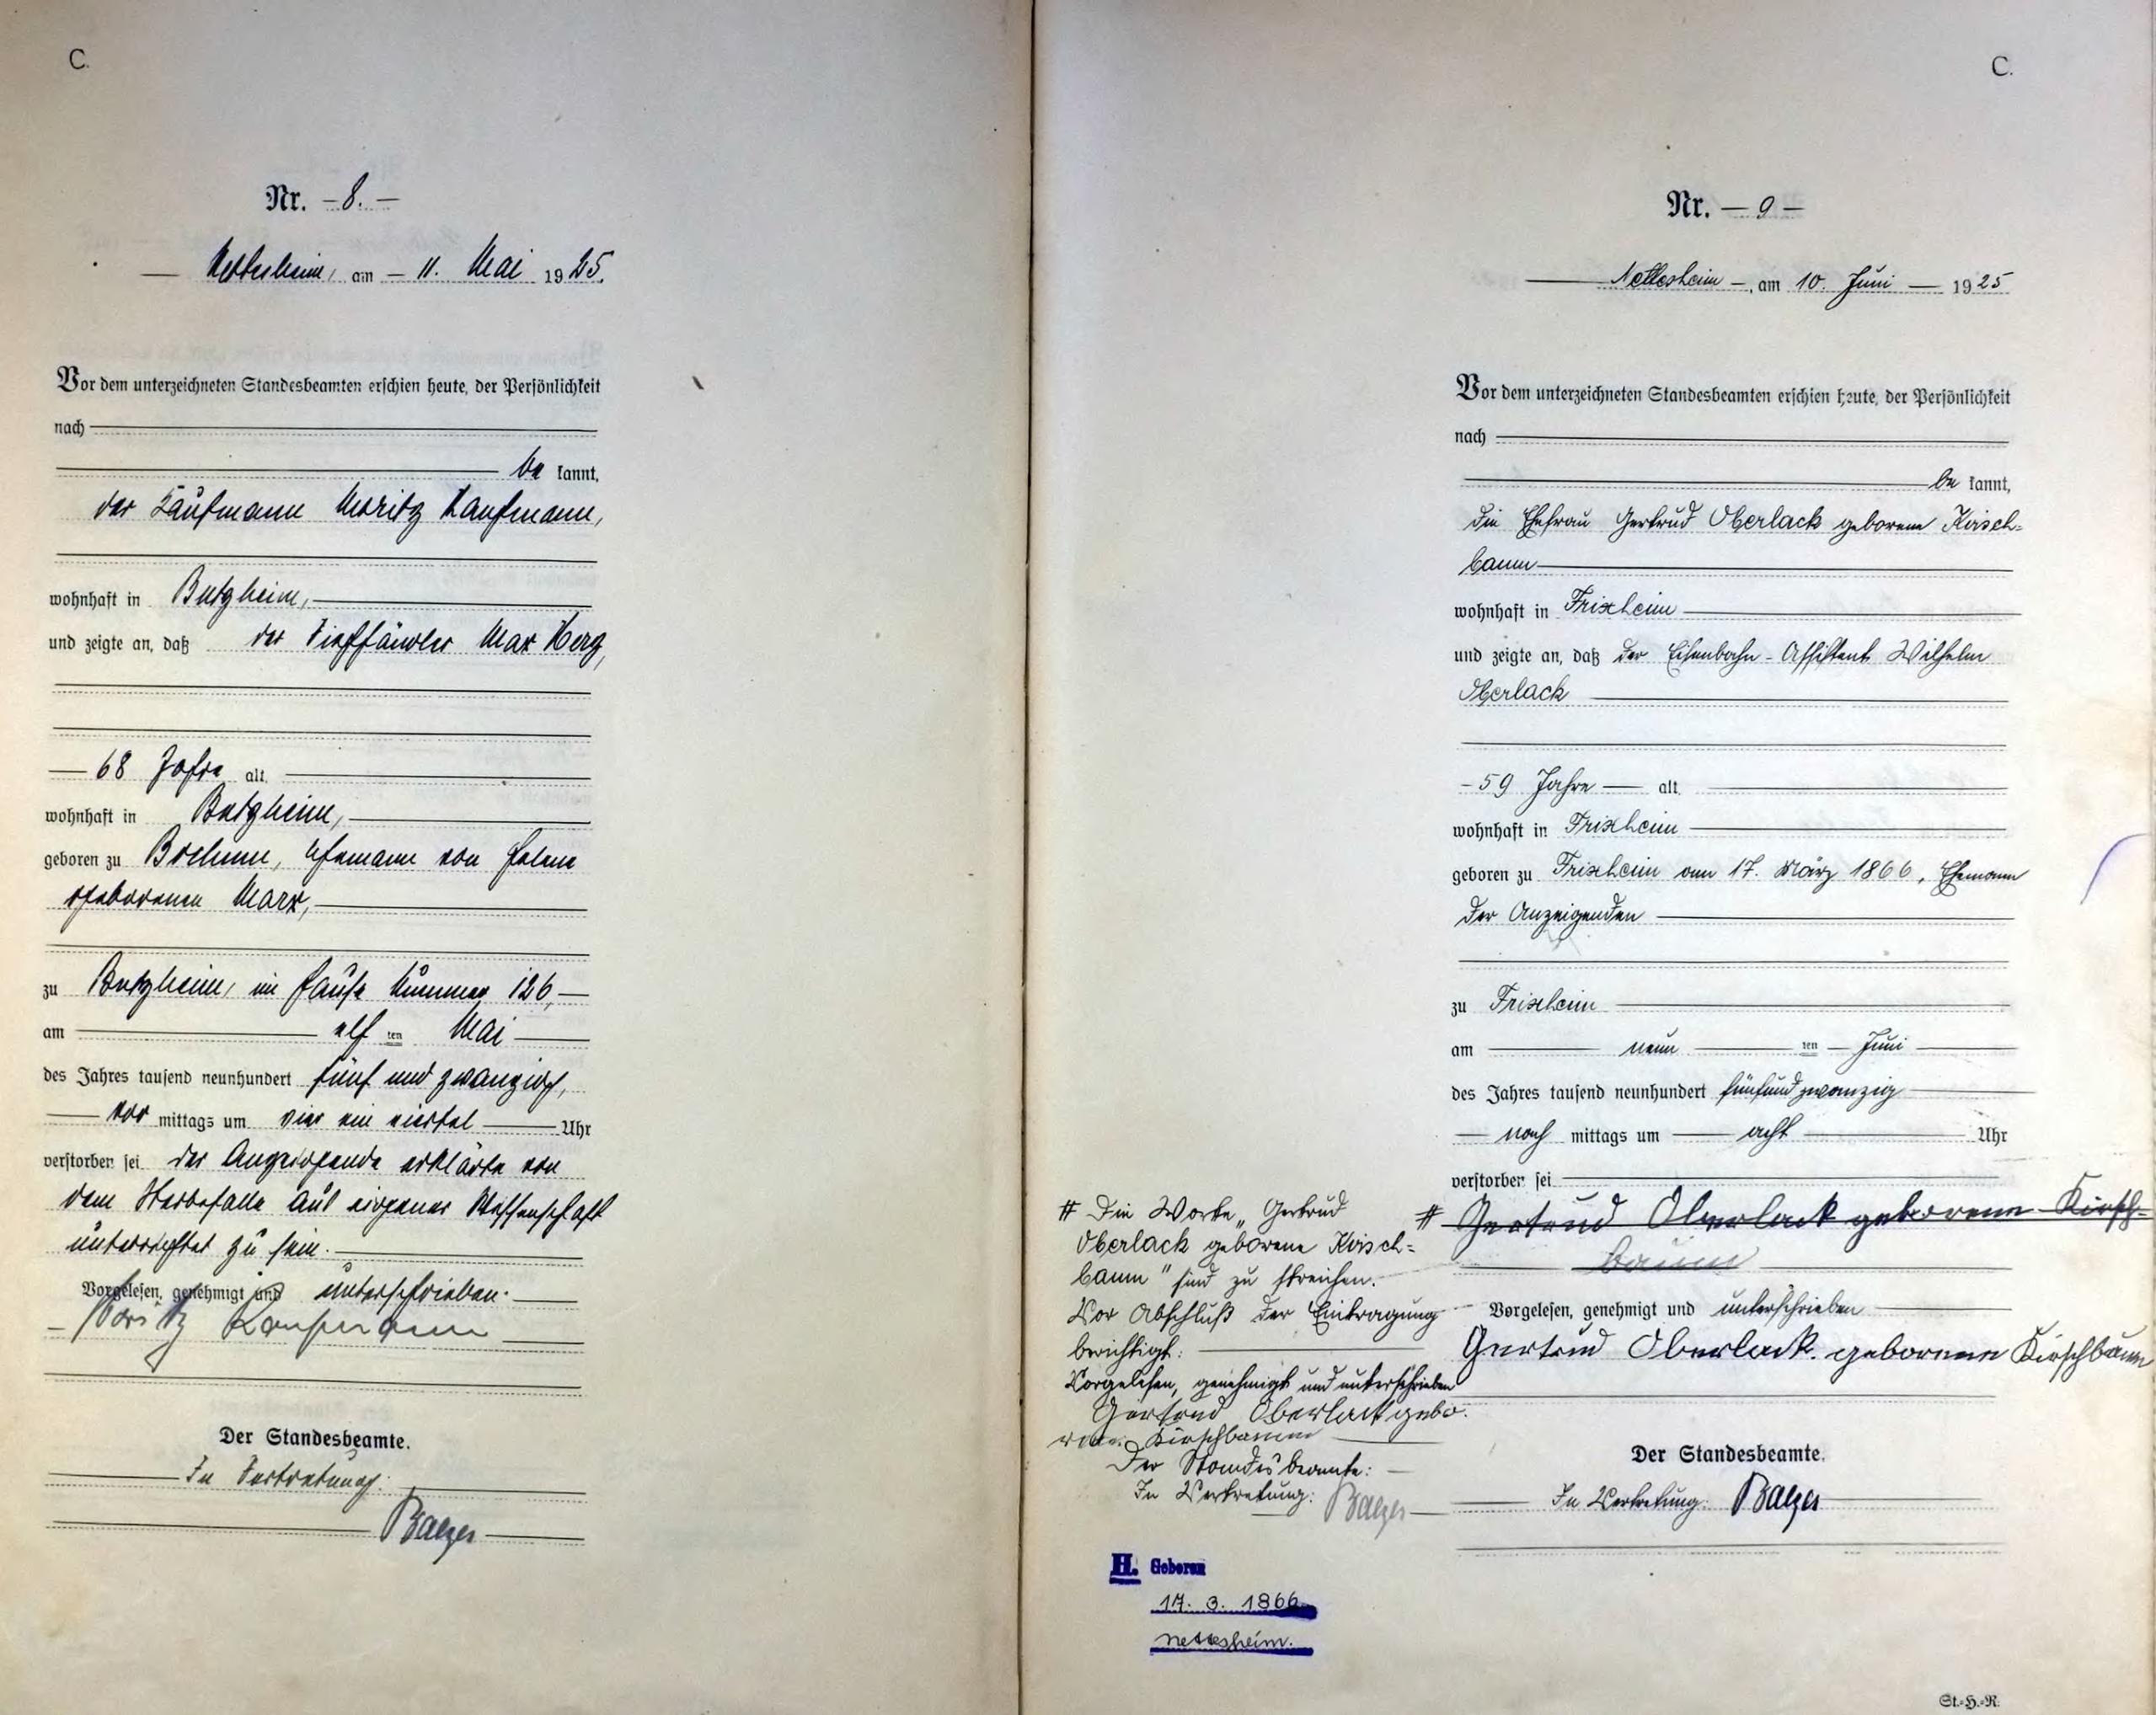 C.
Nr. – 8. –
— Nettesheim, am – 11. Mai 1925.
Vor dem unterzeichneten Standesbeamten erschien heute, der Persönlichkeit
nach
be kannt,
der Kaufmann Moritz Kaufmann,
wohnhaft in Butzheim,
und zeigte an, daß der Viehhändler Max Herz,
— 68 Jahre alt,
wohnhaft in Butzheim,
geboren zu Bochum, Ehemann von Helene
geborenen Marx,
zu Butzheim, im Hause Nummer 126, —
am — elf ten Mai —
des Jahres tausend neunhundert fünf und zwanzig,
— vor mittags um vier ein viertel — Uhr
verstorben sei. Der Anzeigende erklärte von
dem Sterbefalle aus eigener Wissenschaft
unterrichtet zu sein. —
Vorgelesen, genehmigt und unterschrieben. —
– Moritz Kaufmann
Der Standesbeamte.
— In Vertretung:
Balzer —
C.
Nr. — 9 —
— Nettesheim –, am 10. Juni — 1925
Vor dem unterzeichneten Standesbeamten erschien heute, der Persönlichkeit
nach
be kannt,
die Ehefrau Gertrud Oberlack geborene Kirsch=
baum —
wohnhaft in Frixheim —
und zeigte an, daß der Eisenbahn-Assistent Wilhelm
Oberlack —
– 59 Jahre — alt,
wohnhaft in Frixheim —
geboren zu Frixheim am 17. März 1866, Ehemann
der Anzeigenden —
zu Frixheim —
am — neun — ten — Juni —
des Jahres tausend neunhundert fünfundzwanzig —
— nach mittags um — acht — Uhr
verstorben sei —
# Gertrud Oberlack geborene Kirsch=
baum
Vorgelesen, genehmigt und unterschrieben —
Gertrud Oberlack. geborene Kirschbaum
Der Standesbeamte.
— In Vertretung: Balzer —
# Die Worte „Gertrud
Oberlack geborene Kirsch=
baum" sind zu streichen. –
Vor Abschluß der Eintragung
berichtigt: —
Vorgelesen, genehmigt und unterschrieben
Gertrud Oberlack gebo.
rene Kirschbaum —
Der Standesbeamte: —
In Vertretung: Balzer —
H. Geboren
17. 3. 1866
nettesheim.
St.=H.=R.